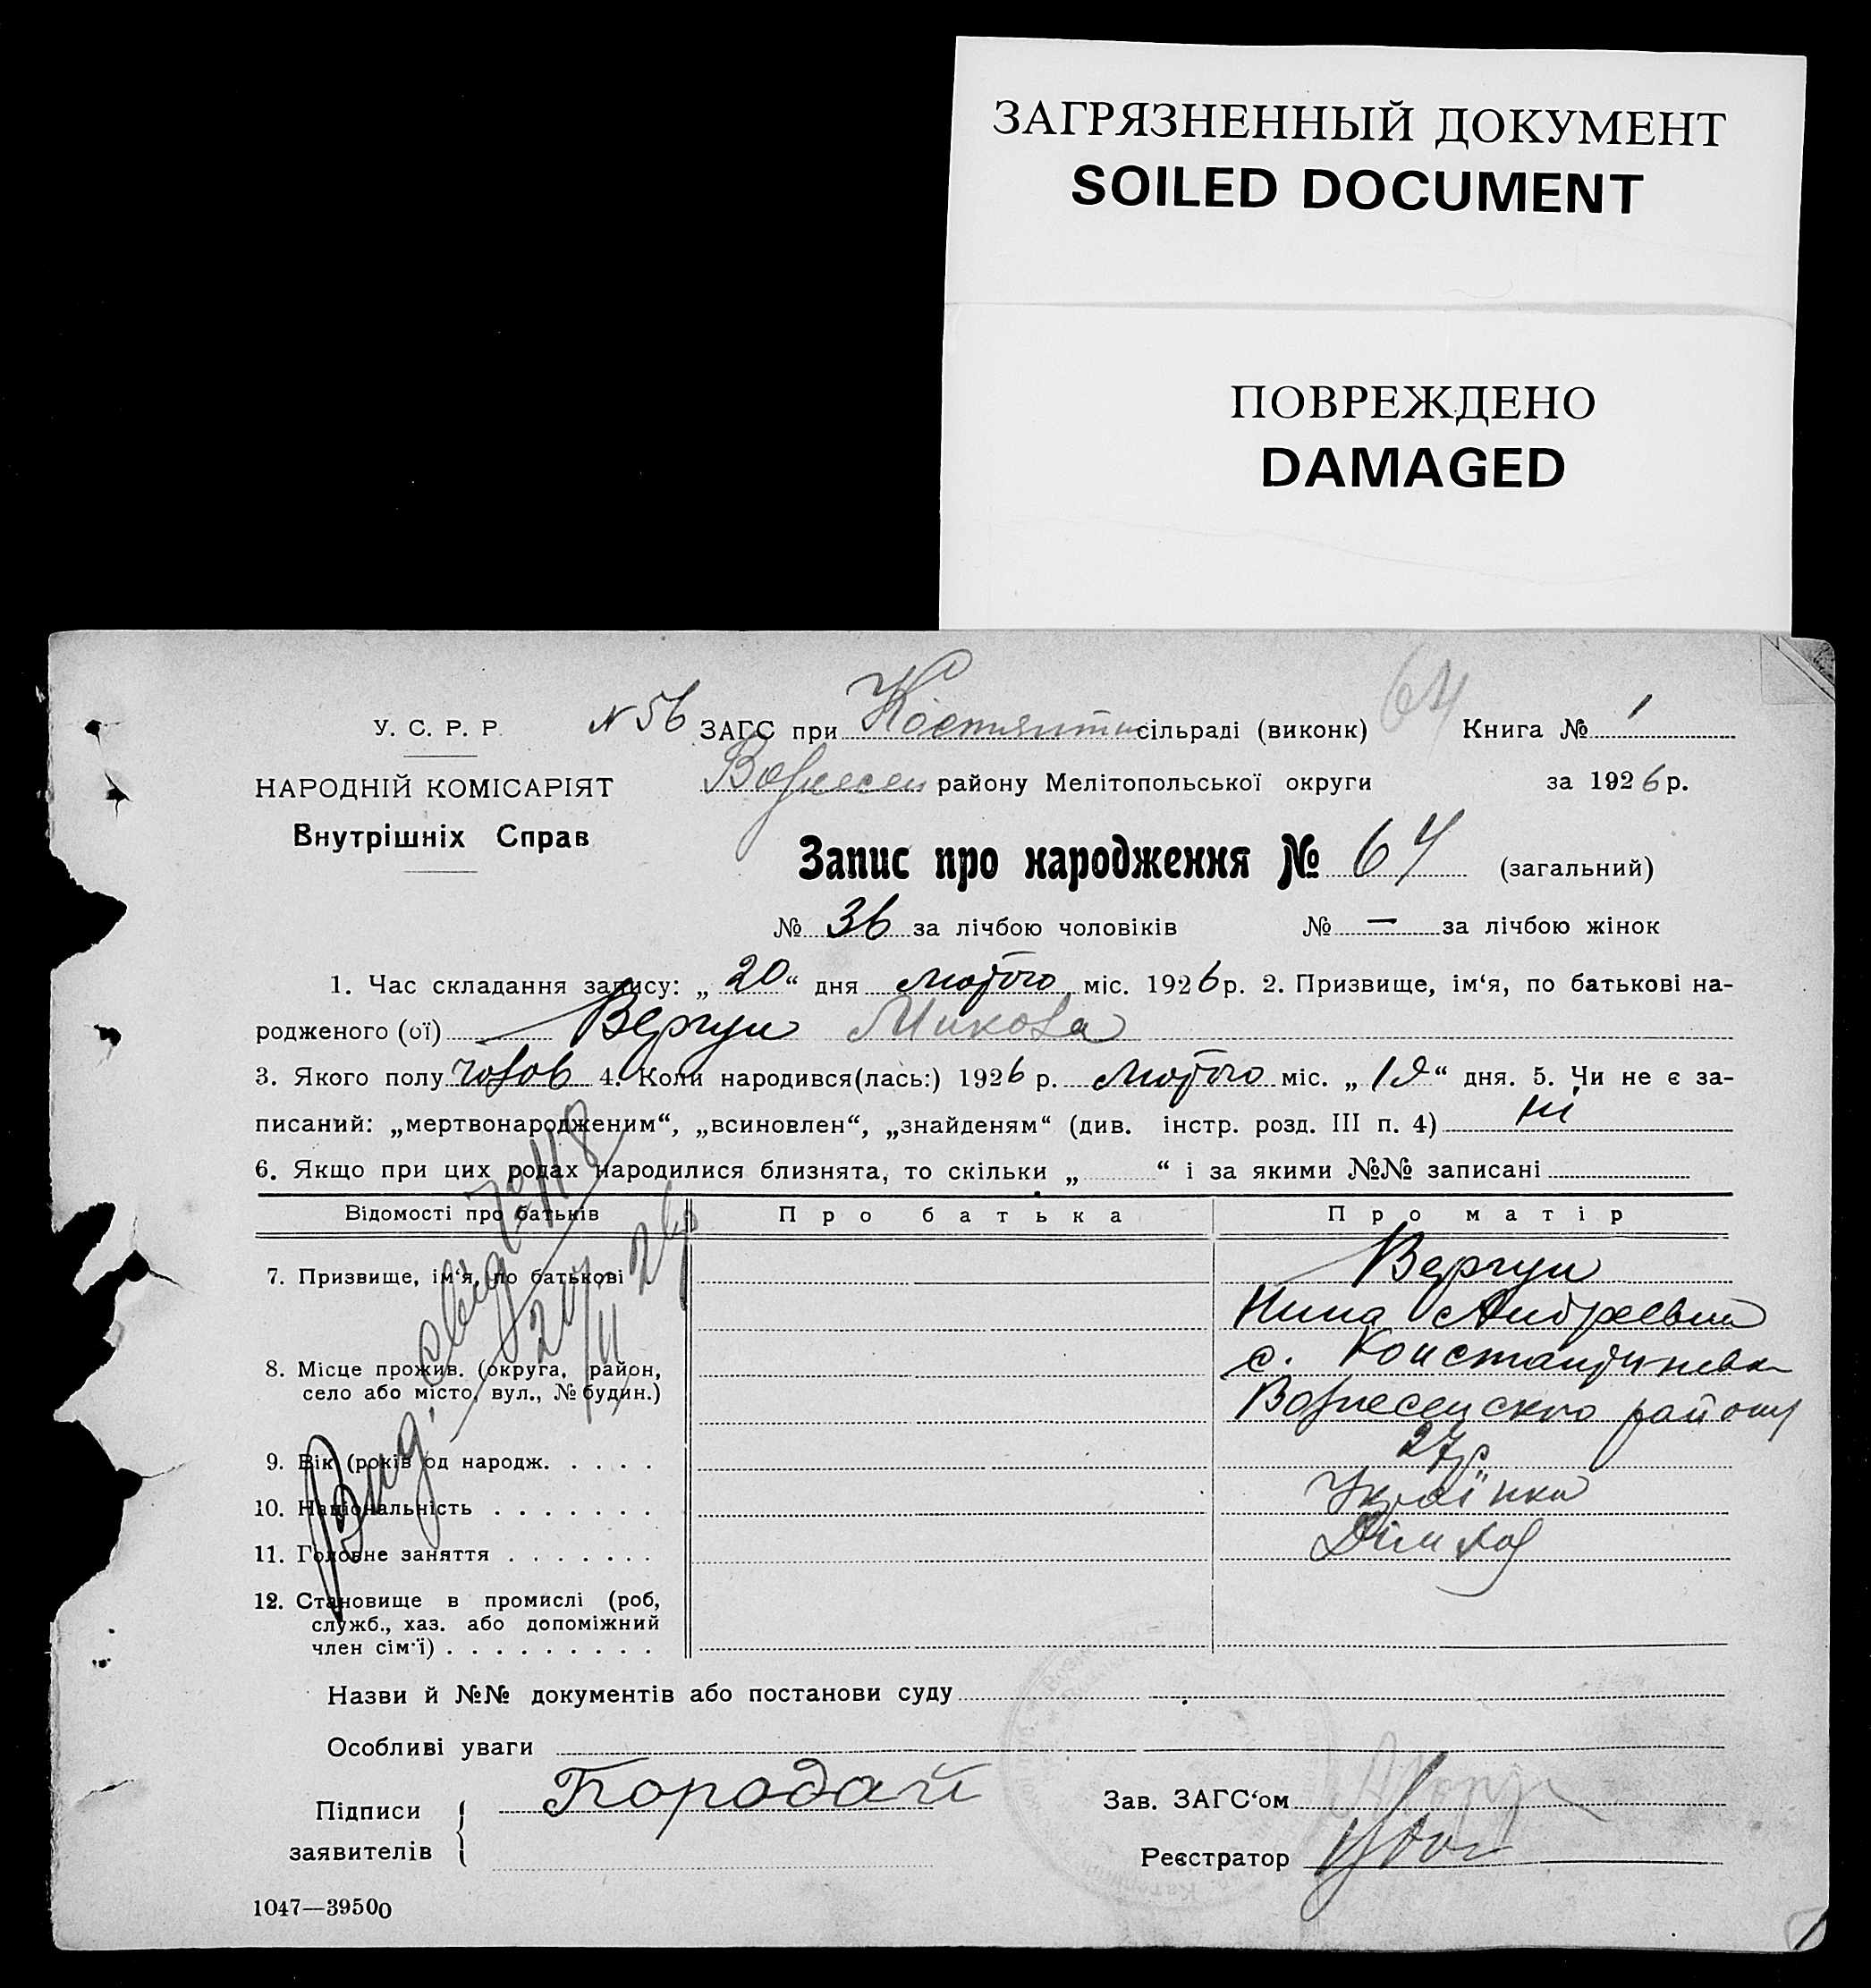 ЗАГРЯЗНЕННЫЙ ДОКУМЕНТ
SOILED DOCUMENT
ПОВРЕЖДЕНО
DAMAGED
64
У. С. Р. Р.
НАРОДНІЙ КОМІСАРІЯТ
Внутрішніх Справ
N 56 ЗАГС при Костянтин сільраді (виконк) Книга № 1
Вознесен району Мелітопольської округи за 1926 р.
Запис про народження № 64 (загальний)
№ 36 за лічбою чоловіків № — за лічбою жінок
1. Час складання запису: „ 20 “ дня лютого міс. 1926 р. 2. Призвище, ім‘я, по батькові на-
родженого (ої) Вергун Микола
3. Якого полу чолов 4. Коли народився(лась:) 1926 р. лютого міс. „ “ дня. 5. Чи не є за-
писаний: „мертвонародженим“, „всиновлен“, „знайденям“ (див. інстр. розд. III п. 4) ні
6. Якщо при цих родах народилися близнята, то скільки „ “ і за якими №№ записані
Відомості про батьків Про батька Про матір
7. Призвище, ім‘я, по батькові Вергун
Нина Андреевна
8. Місце прожив. (округа, район, с. Константиневка
село або місто, вул., № будин.) Вознесенского району
9. Вік (років од народж. 27 р
10. Національність Українка
11. Головне заняття
12. Становище в промислі (роб,
служб., хаз. або допоміжний
член сім‘ї)
Вид. свид
Назви й №№ документів або постанови суду
Особливі уваги
Підписи Бородай Зав. ЗАГС‘ом
заявителів Реєстратор
1047—39500